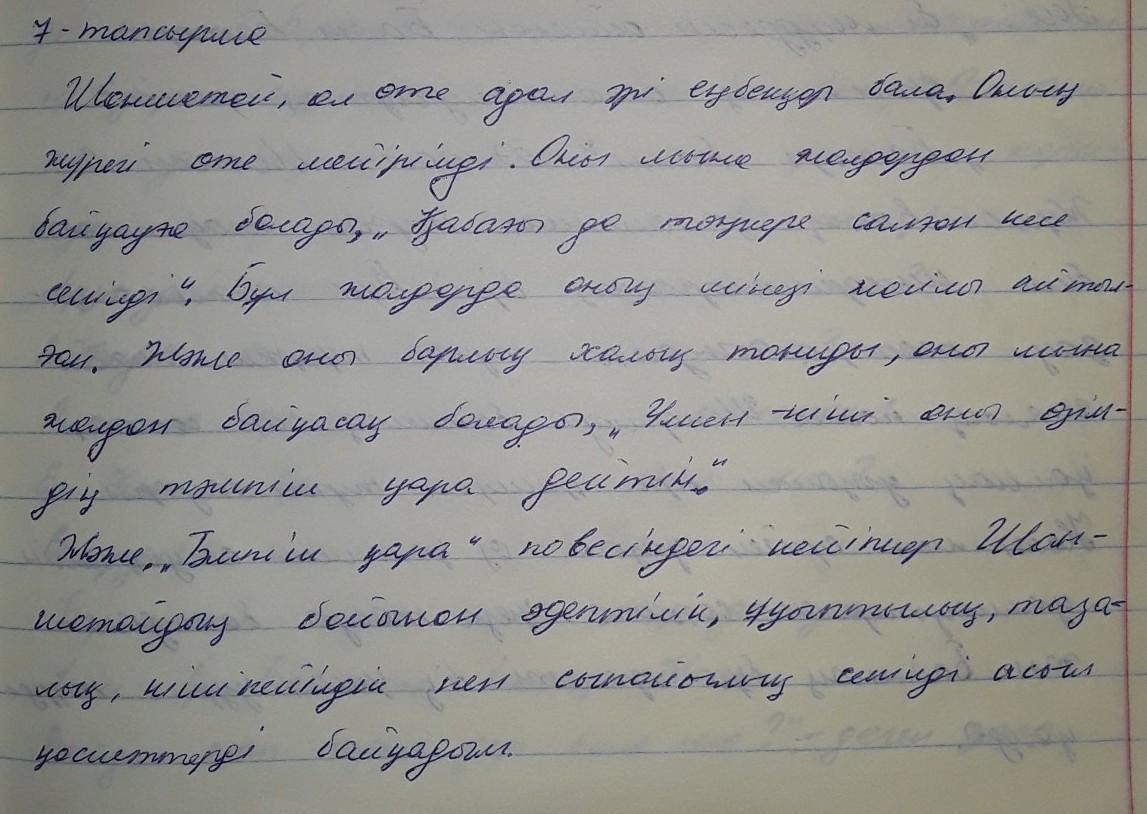 7-тапсырма
Шоншотай, ол өте адал әрі еңбекқор бала. Оның
жүрегі өте мейірімді. Оны мына жолдардан
байқауға болады, „Қабағы да төңкере салған кесе
секілді“. Бұл жолдарда оның мінезі жайлы айтыл-
ған. Және оны барлық халық таниды, оны мына
жолдан байқасақ болады, „Үлкен-кіші оны өзім-
дің тәмпіш қара дейтін.“
Және, „Тәмпіш қара“ повесіндегі кейіпкер Шон-
шотайдың бойынан әдептілік, ұқыптылық, таза-
лық, кішіпейілдік пен сыпайылық секілді асыл
қасиеттерді байқадым.